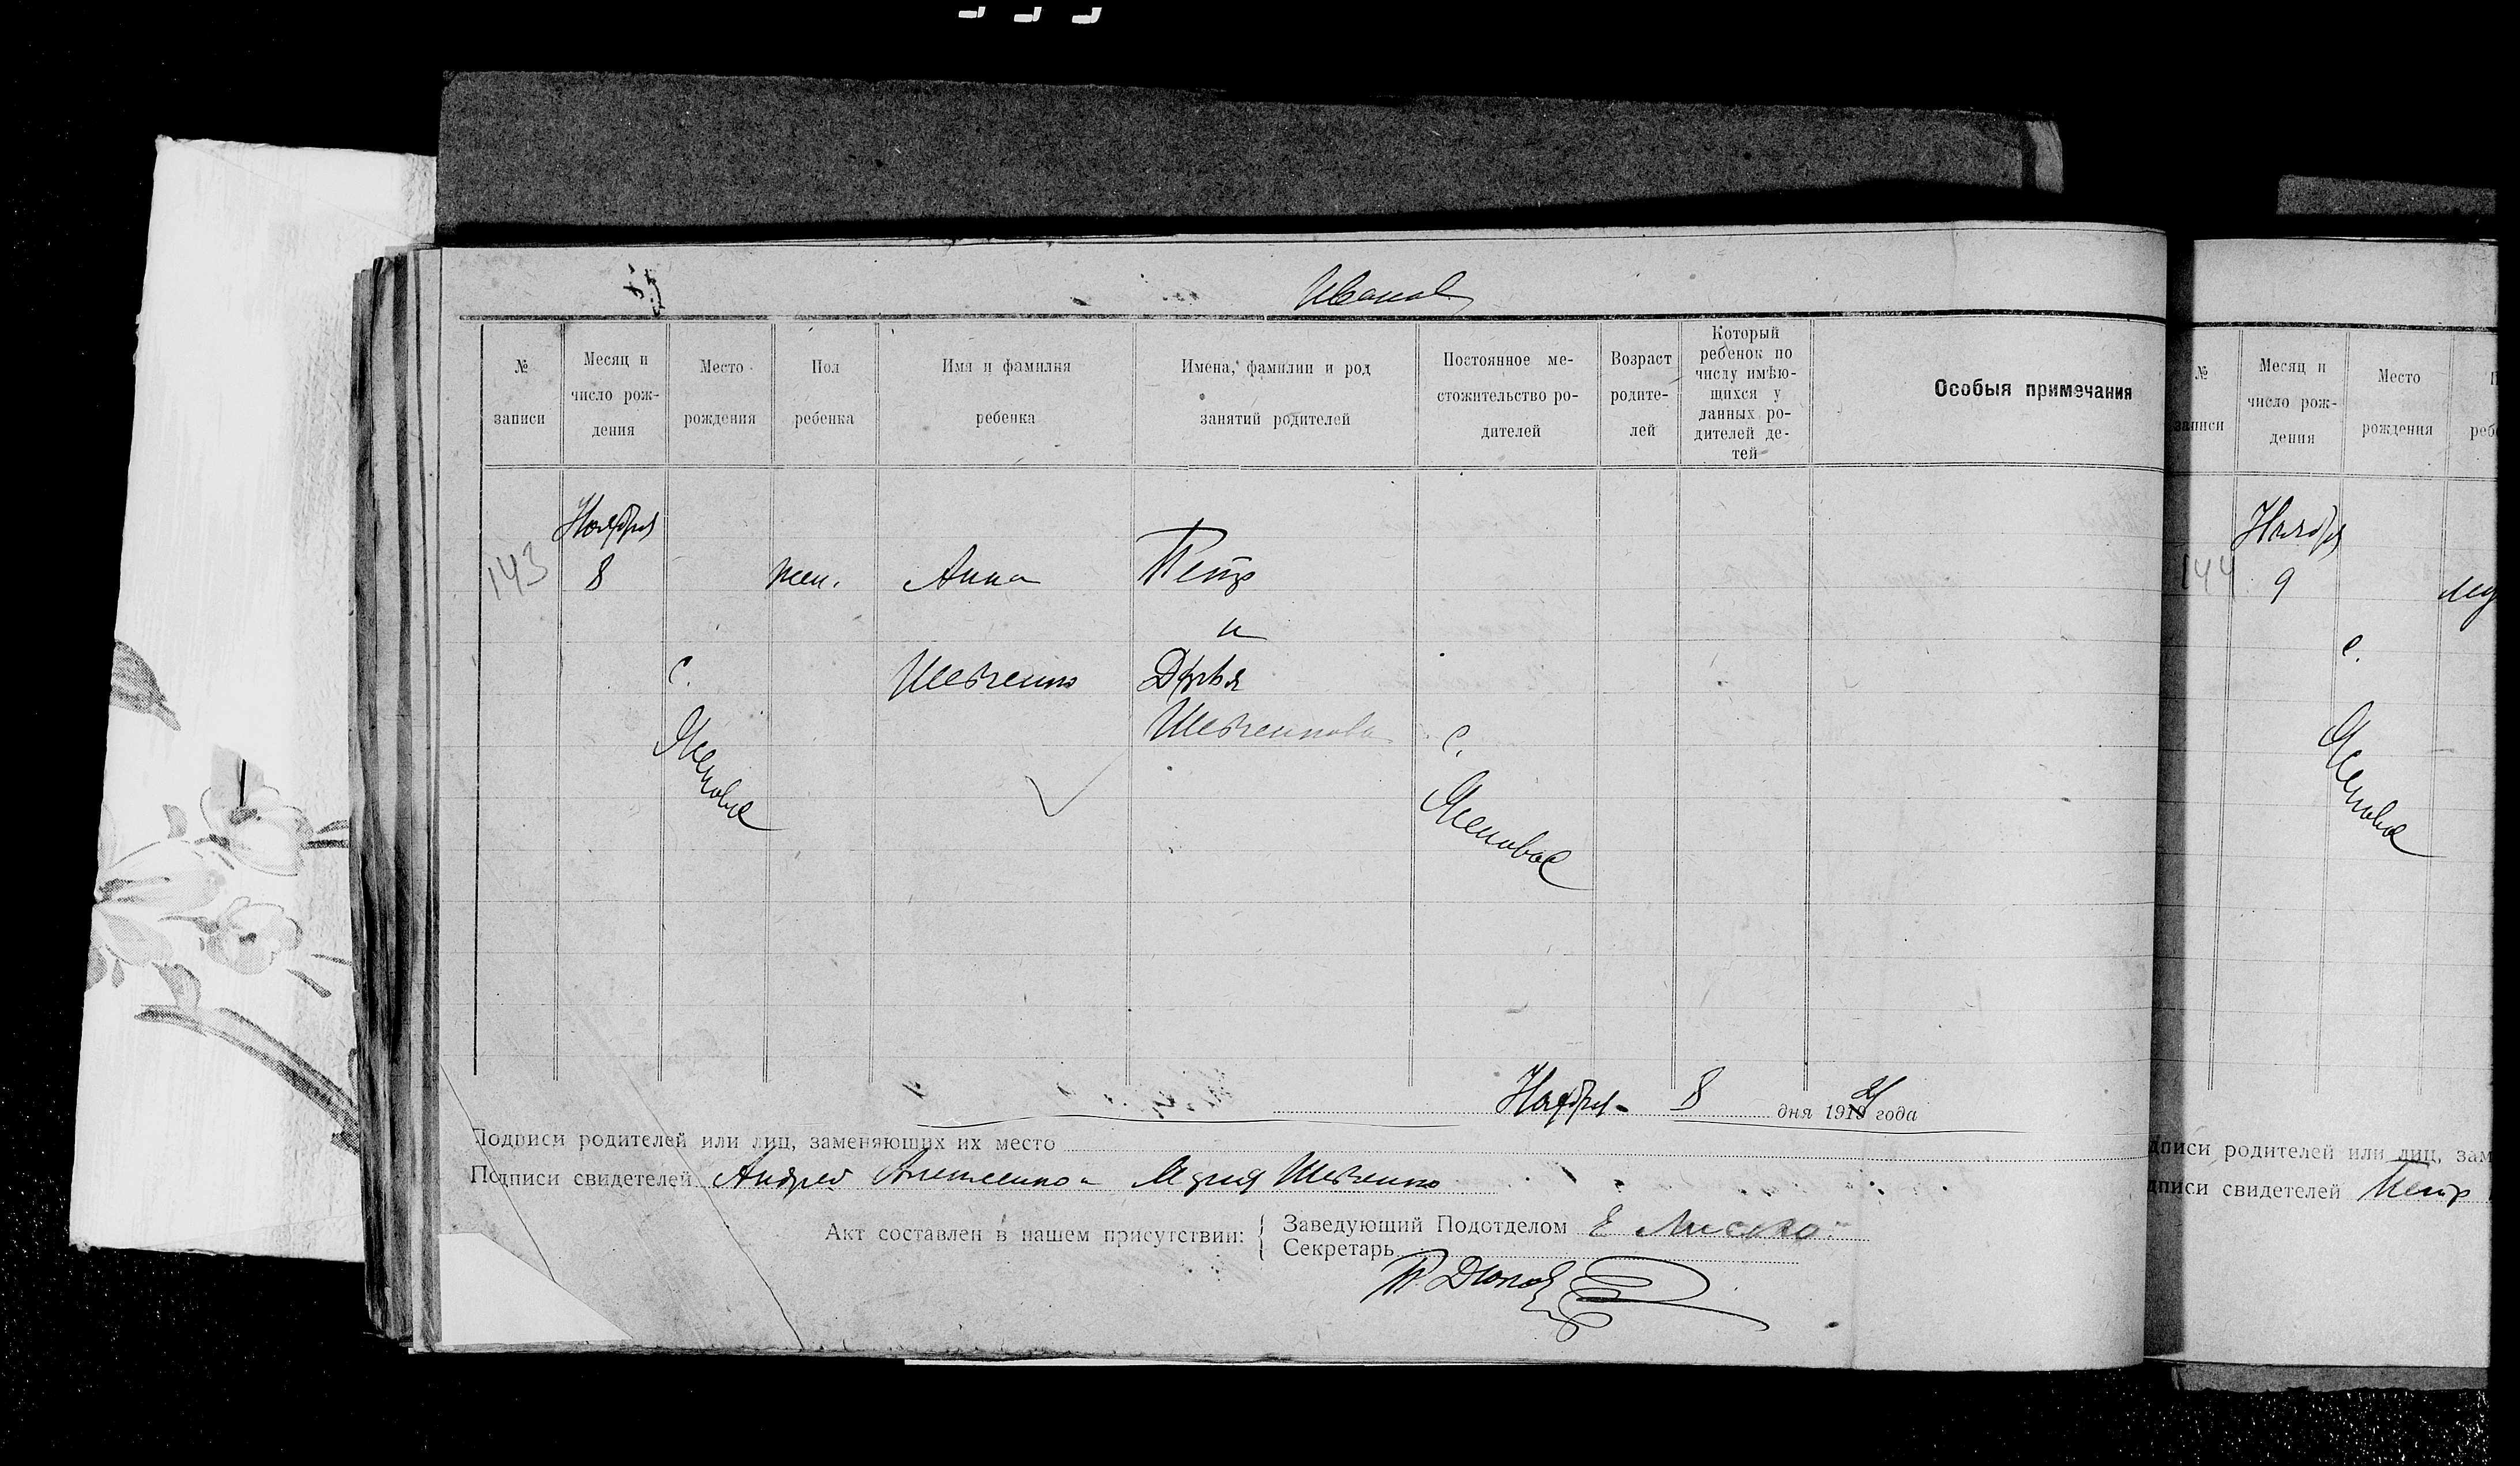 Иванов
№ записи
Месяц и число рождения
Место рождения
Пол ребенка
Имя и фамилия ребенка
Имена, фамилии и род занятий родителей
Постоянное местожительство родителей
Возраст родителей
Который ребенок по числу имѣющихся у данных родителей детей
Особыя примечания
143
Ноября
8
с.
жен.
Анна
Шевченко
Петр
и
Дарья
Шевченкова
с.
Ноября 8 дня 1919 года
Подписи родителей или лиц, заменяющих их место
Подписи свидетелей Андрей Мария Шевченко
Акт составлен в нашем присутствии:
Заведующий Подотделом Е Лисско
Секретарь
№ записи
Месяц и число рождения
Место рождения
144
Ноября
9
с.
дписи родителей или лиц, зам
дписи свидетелей Петр